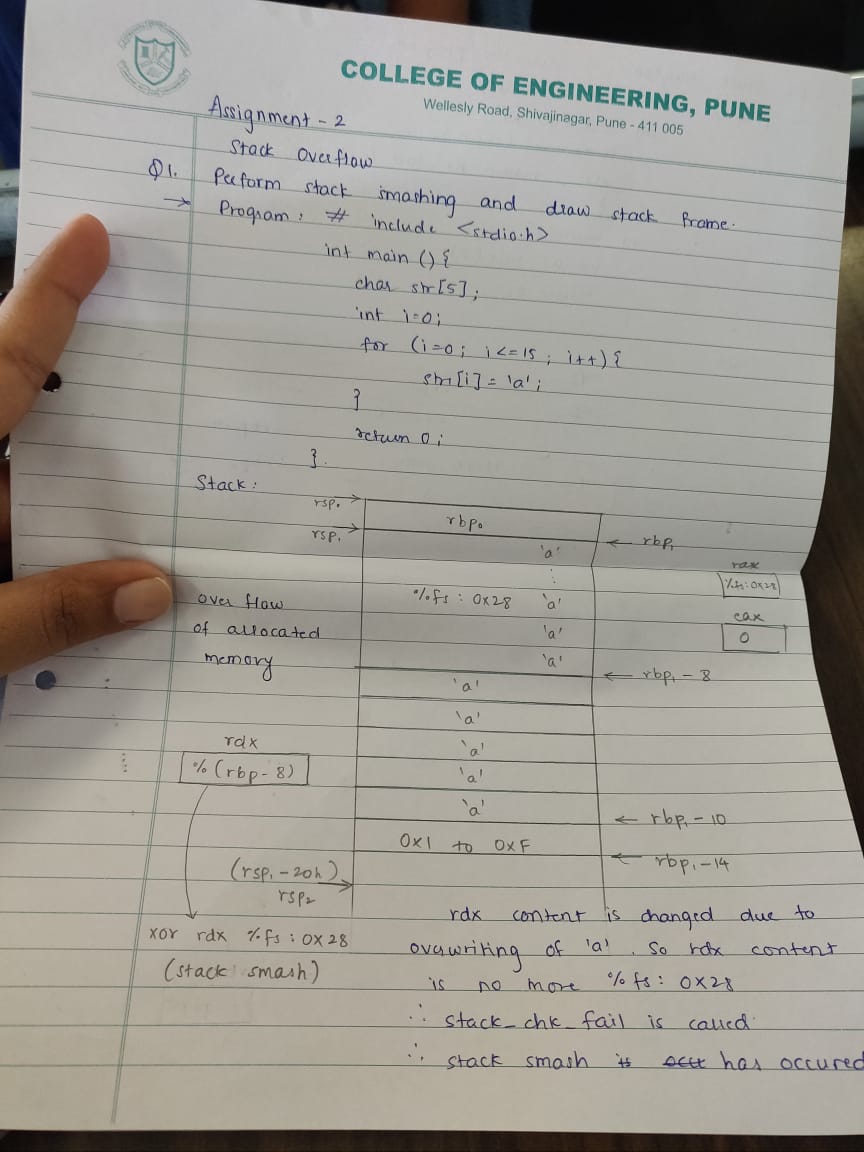 COLLEGE OF ENGINEERING, PUNE
Wellesly Road, Shivajinagar, Pune - 411 005
Assignment - 2
Stack Overflow
Q1. Perform stack smashing and draw stack frame.
→ Program: # include <stdio.h>
int main () {
char str[5];
int i=0;
for (i=0; i<=15; i++) {
str[i] = 'a';
}
return 0;
}.
Stack:
rsp₀
rbp₀
rsp₁
← rbp₁
'a'
rax
%fs:0x28
⋮
%fs : 0x28 'a'
eax
0
over flow
of allocated
memory
'a'
'a'
← rbp₁ - 8
'a'
'a'
'a'
'a'
'a'
rdx
% (rbp - 8)
← rbp₁ - 10
0x1 to 0xF
← rbp₁ - 14
(rsp₁ - 20h)
rsp₂
xor rdx %fs : 0x28
(stack smash)
rdx content is changed due to
overwriting of 'a'. So rdx content
is no more %fs : 0x28
∴ stack_chk_fail is called
∴ stack smash has occured